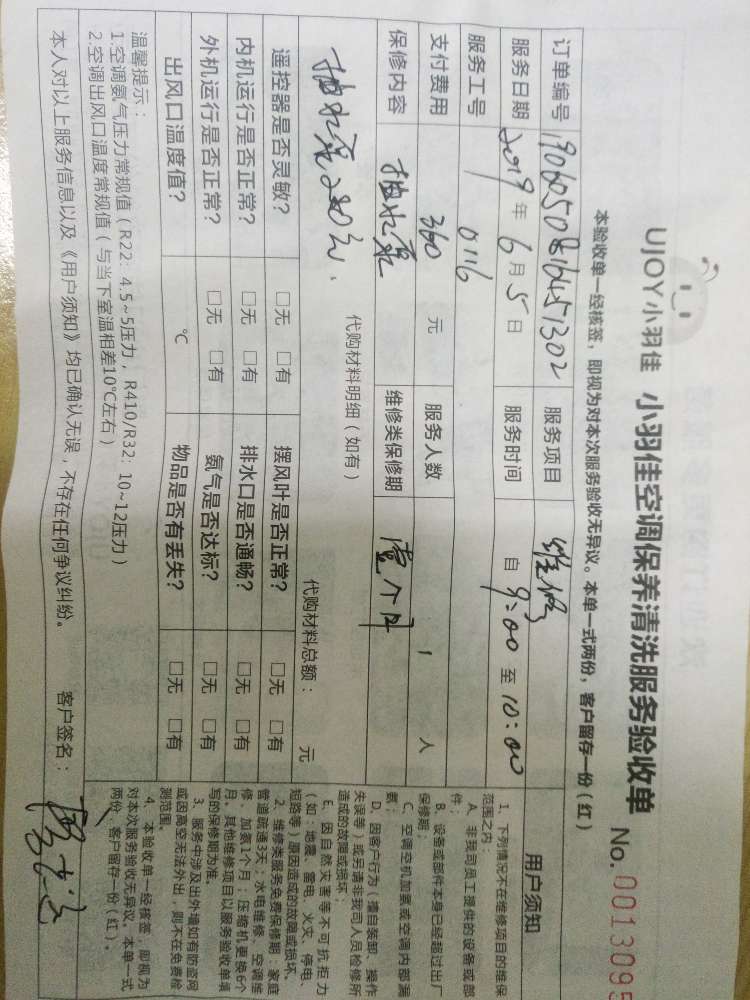 UJOY小羽佳 小羽佳空调保养清洗服务验收单 No. 0013095
本验收单一经核签，即视为对本次服务验收无异议。本单一式两份，客户留存一份（红）
订单编号 1906050816451302 服务项目 维修
服务日期 2019 年 6 月 5 日 服务时间 自 9:00 至 10:00
服务工号 0116
支付费用 360 元 服务人数 1 人
保修内容 抽水泵 维修类保修期 壹个月
代购材料明细（如有） 代购材料总额： 元
抽水泵280元.
遥控器是否灵敏？ □无 □有 摆风叶是否正常？ □无 □有
内机运行是否正常？ □无 □有 排水口是否通畅？ □无 □有
外机运行是否正常？ □无 □有 氨气是否达标？ □无 □有
出风口温度值？ ℃ 物品是否有丢失？ □无 □有
温馨提示：
1.空调氨气压力常规值（R22：4.5~5压力，R410/R32：10~12压力）
2.空调出风口温度常规值（与当下室温相差10℃左右）
本人对以上服务信息以及《用户须知》均已确认无误，不存在任何争议纠纷。 客户签名：
用户须知
1、下列情况不在维修项目的维保
范围之内：
A、非我司员工提供的设备或部
件；
B、设备或部件本身已经超过出厂
保修期；
C、空调空机加氨或空调内部漏
氨；
D、因客户行为（擅自装卸、操作
失误等）或另请非我司人员检修所
造成的故障或损坏；
E、因自然灾害等不可抗拒力
（如：地震、雷电、火灾、停电、
短路等）原因造成的故障或损坏。
2、维修类服务免费保修期：家庭
管道疏通3天；水电维修、空调维
修、加氨1个月；压缩机更换6个
月。其他维修项目以服务验收单填
写的保修期为准。
3、服务中涉及出外墙如有防盗网
或因高空无法外出，则不在免费检
测范围。
4、本验收单一经核签，即视为
对本次服务验收无异议。本单一式
两份，客户留存一份（红）。